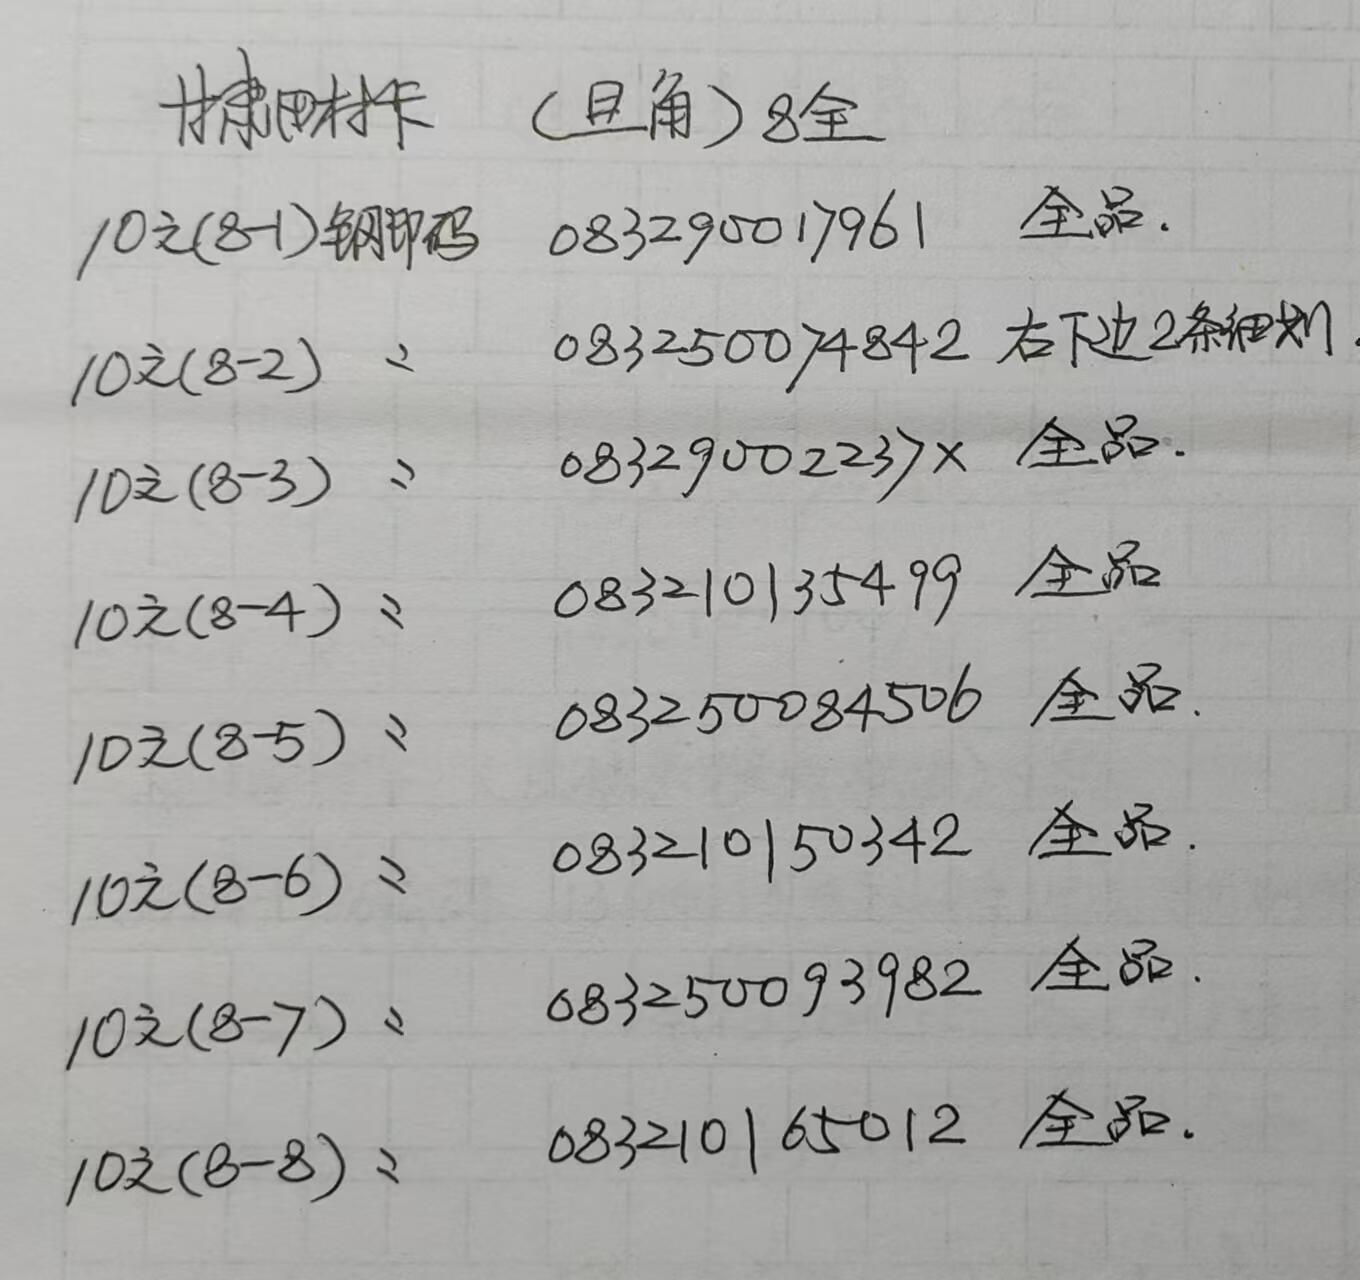 甘肃田村卡 (旦角) 8全
10元(8-1)钢印码 083290017961 全品.
10元(8-2) 〃 083250074842 右下边2条细划.
10元(8-3) 〃 08329002237X 全品.
10元(8-4) 〃 083210135499 全品
10元(8-5) 〃 083250084506 全品.
10元(8-6) 〃 083210150342 全品.
10元(8-7) 〃 083250093982 全品.
10元(8-8) 〃 083210165012 全品.